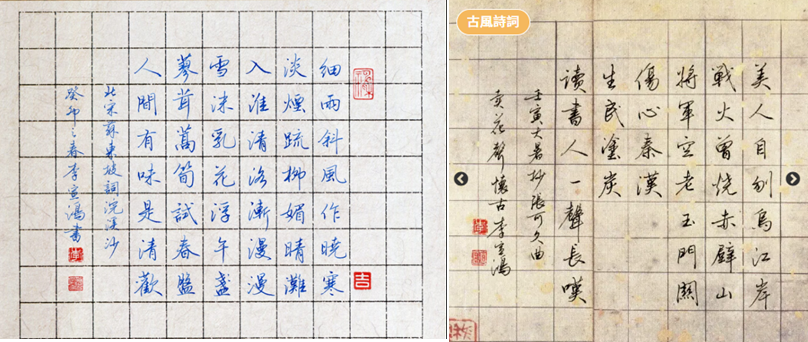 細雨斜風作曉寒
淡煙疏柳媚晴灘
入淮清洛漸漫漫
雪沫乳花浮午盞
蓼茸蒿筍試春盤
人間有味是清歡
北宋蘇東坡詞浣溪沙
癸卯之春李宣鴻書
吉
古風詩詞
美人自刎烏江岸
戰火曾燒赤壁山
將軍空老玉門關
傷心秦漢
生民塗炭
讀書人一聲長嘆
壬寅大暑抄張可久曲
賣花聲懷古 李宣鴻